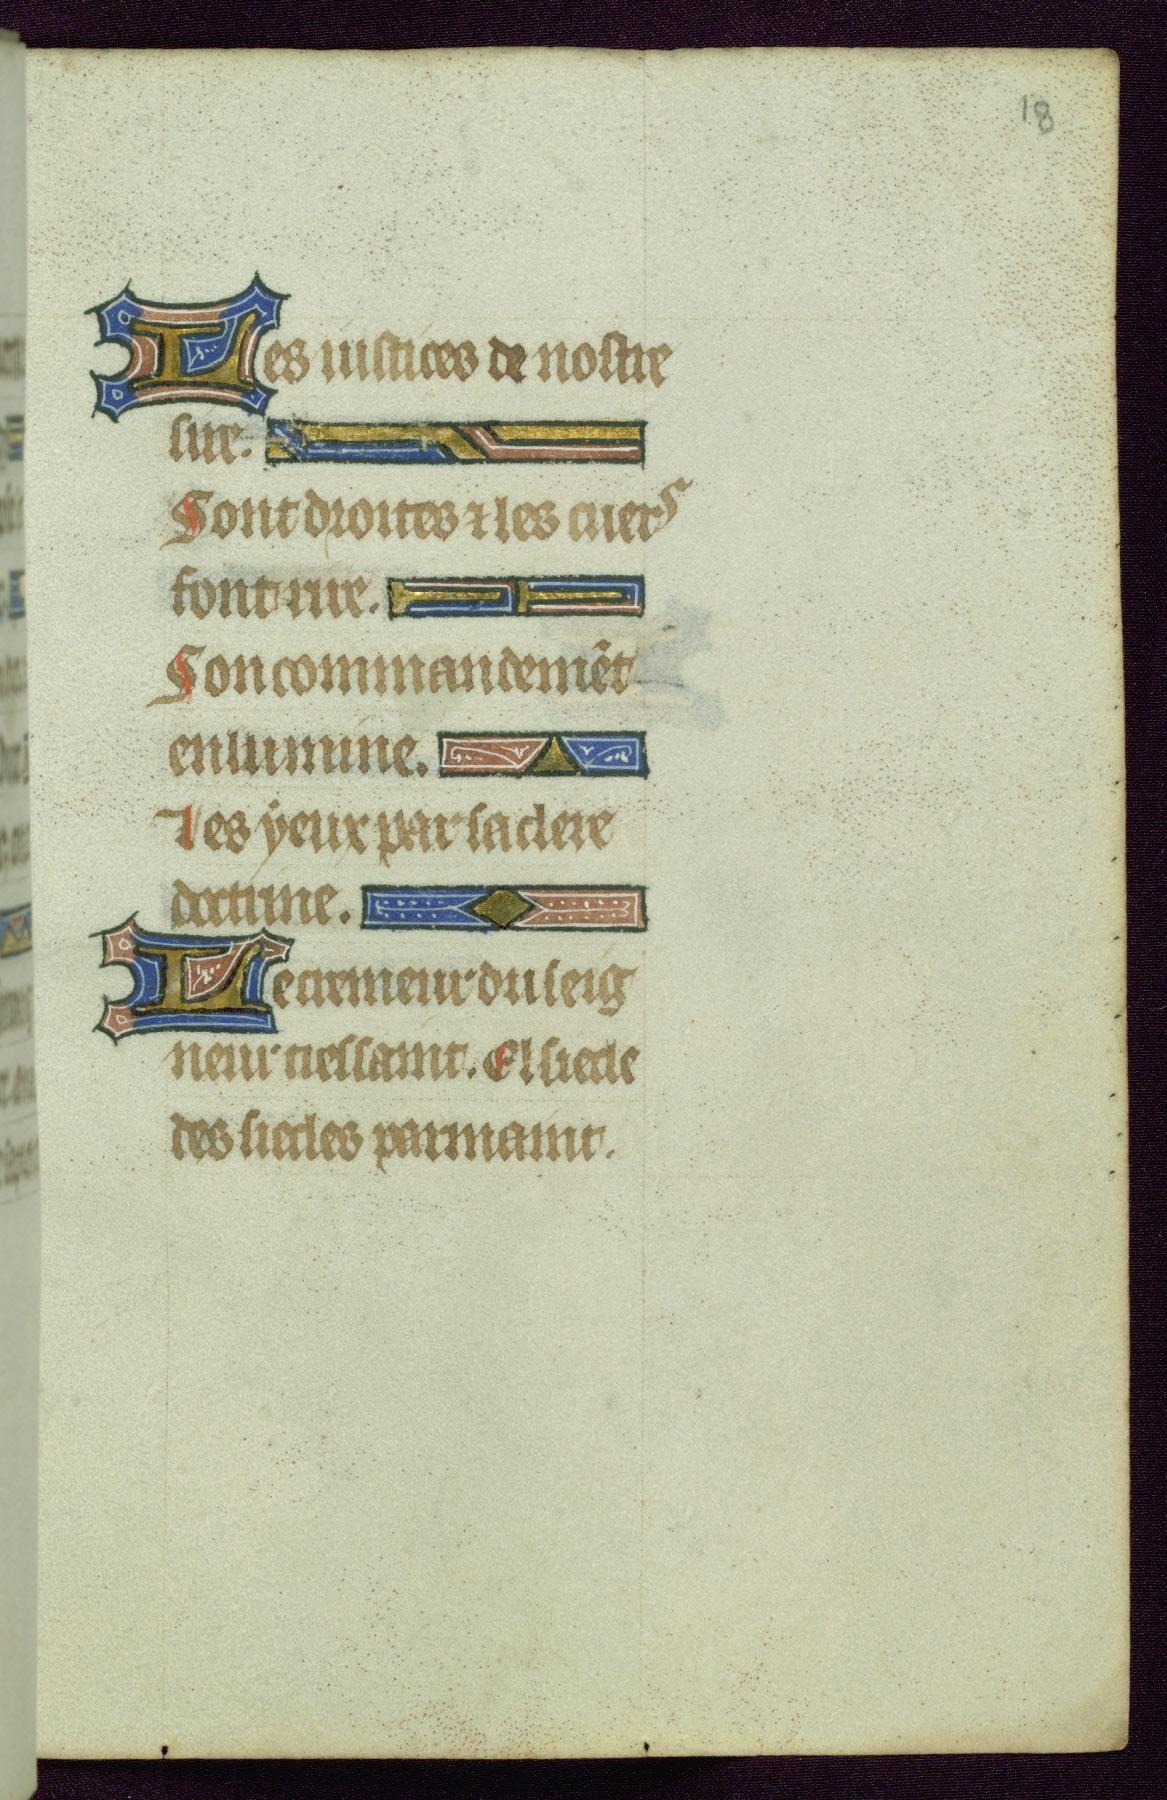 18
Les iustices de nostre
sire.
Sont droites ⁊ les cuers
font rire.
Son commandemẽt
enlumine.
Les ẏeux par sa clere
doctrine.
Le cremeur du seig
neur tressaint. El siecle
des siecles parmaint.